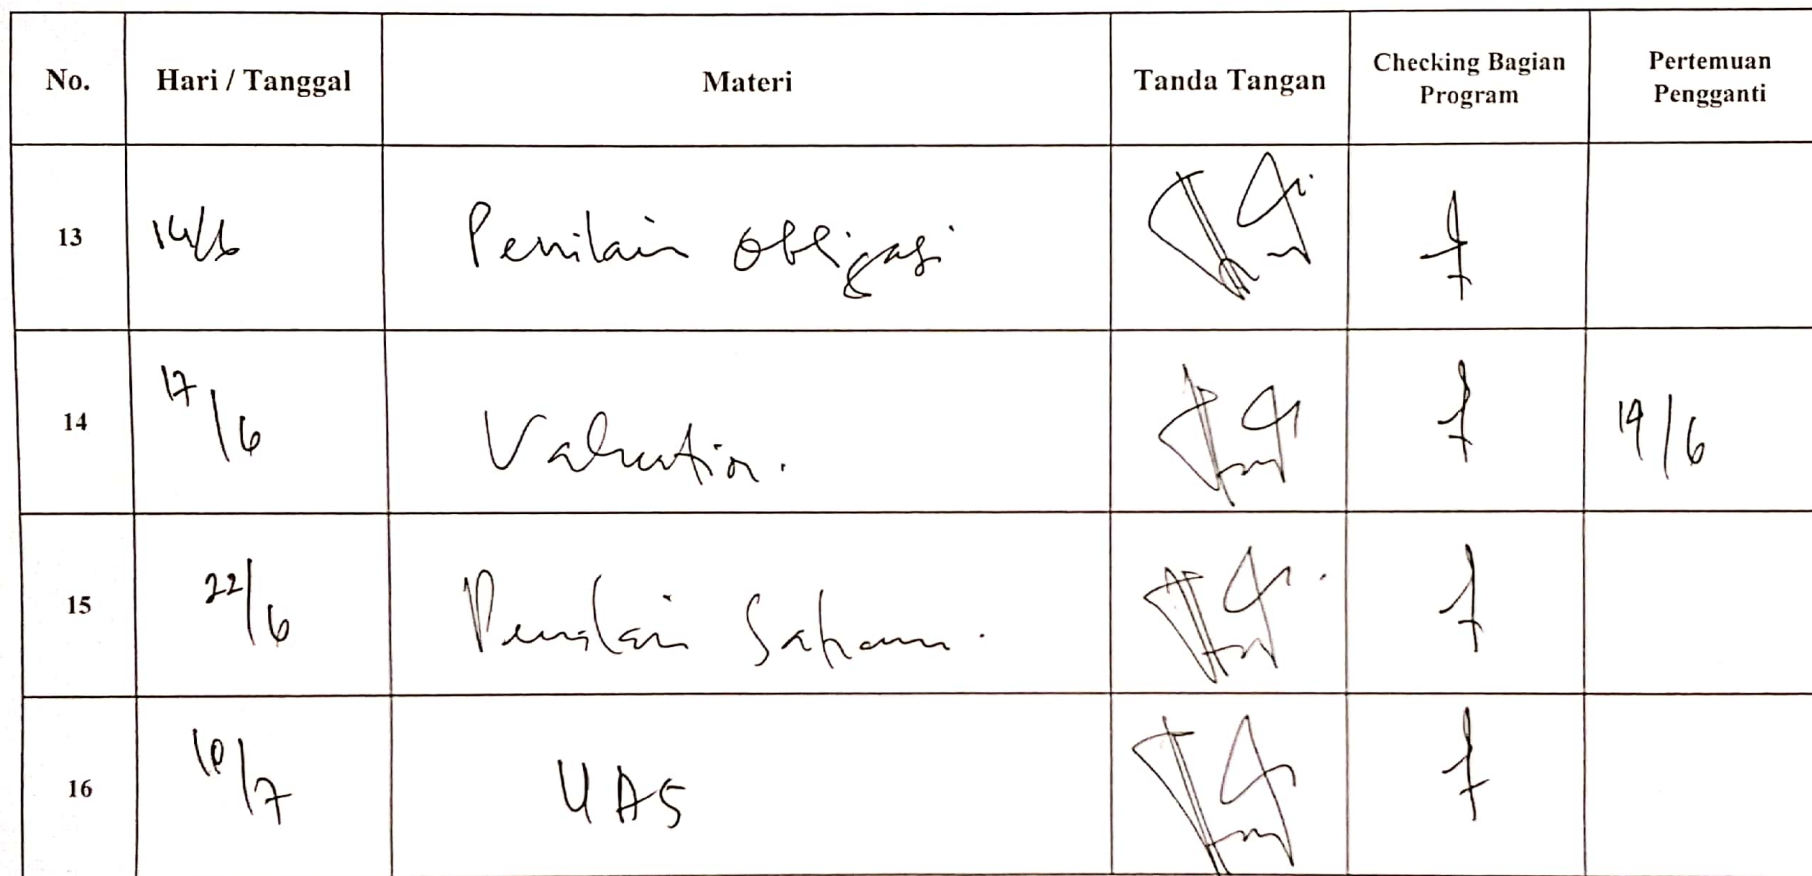 No. Hari / Tanggal Materi Tanda Tangan Checking Bagian Program Pertemuan Pengganti
13 14/6 Penilain Obligasi
14 17/6 Valuation. 19/6
15 22/6 Penilain Saham.
16 10/7 UAS